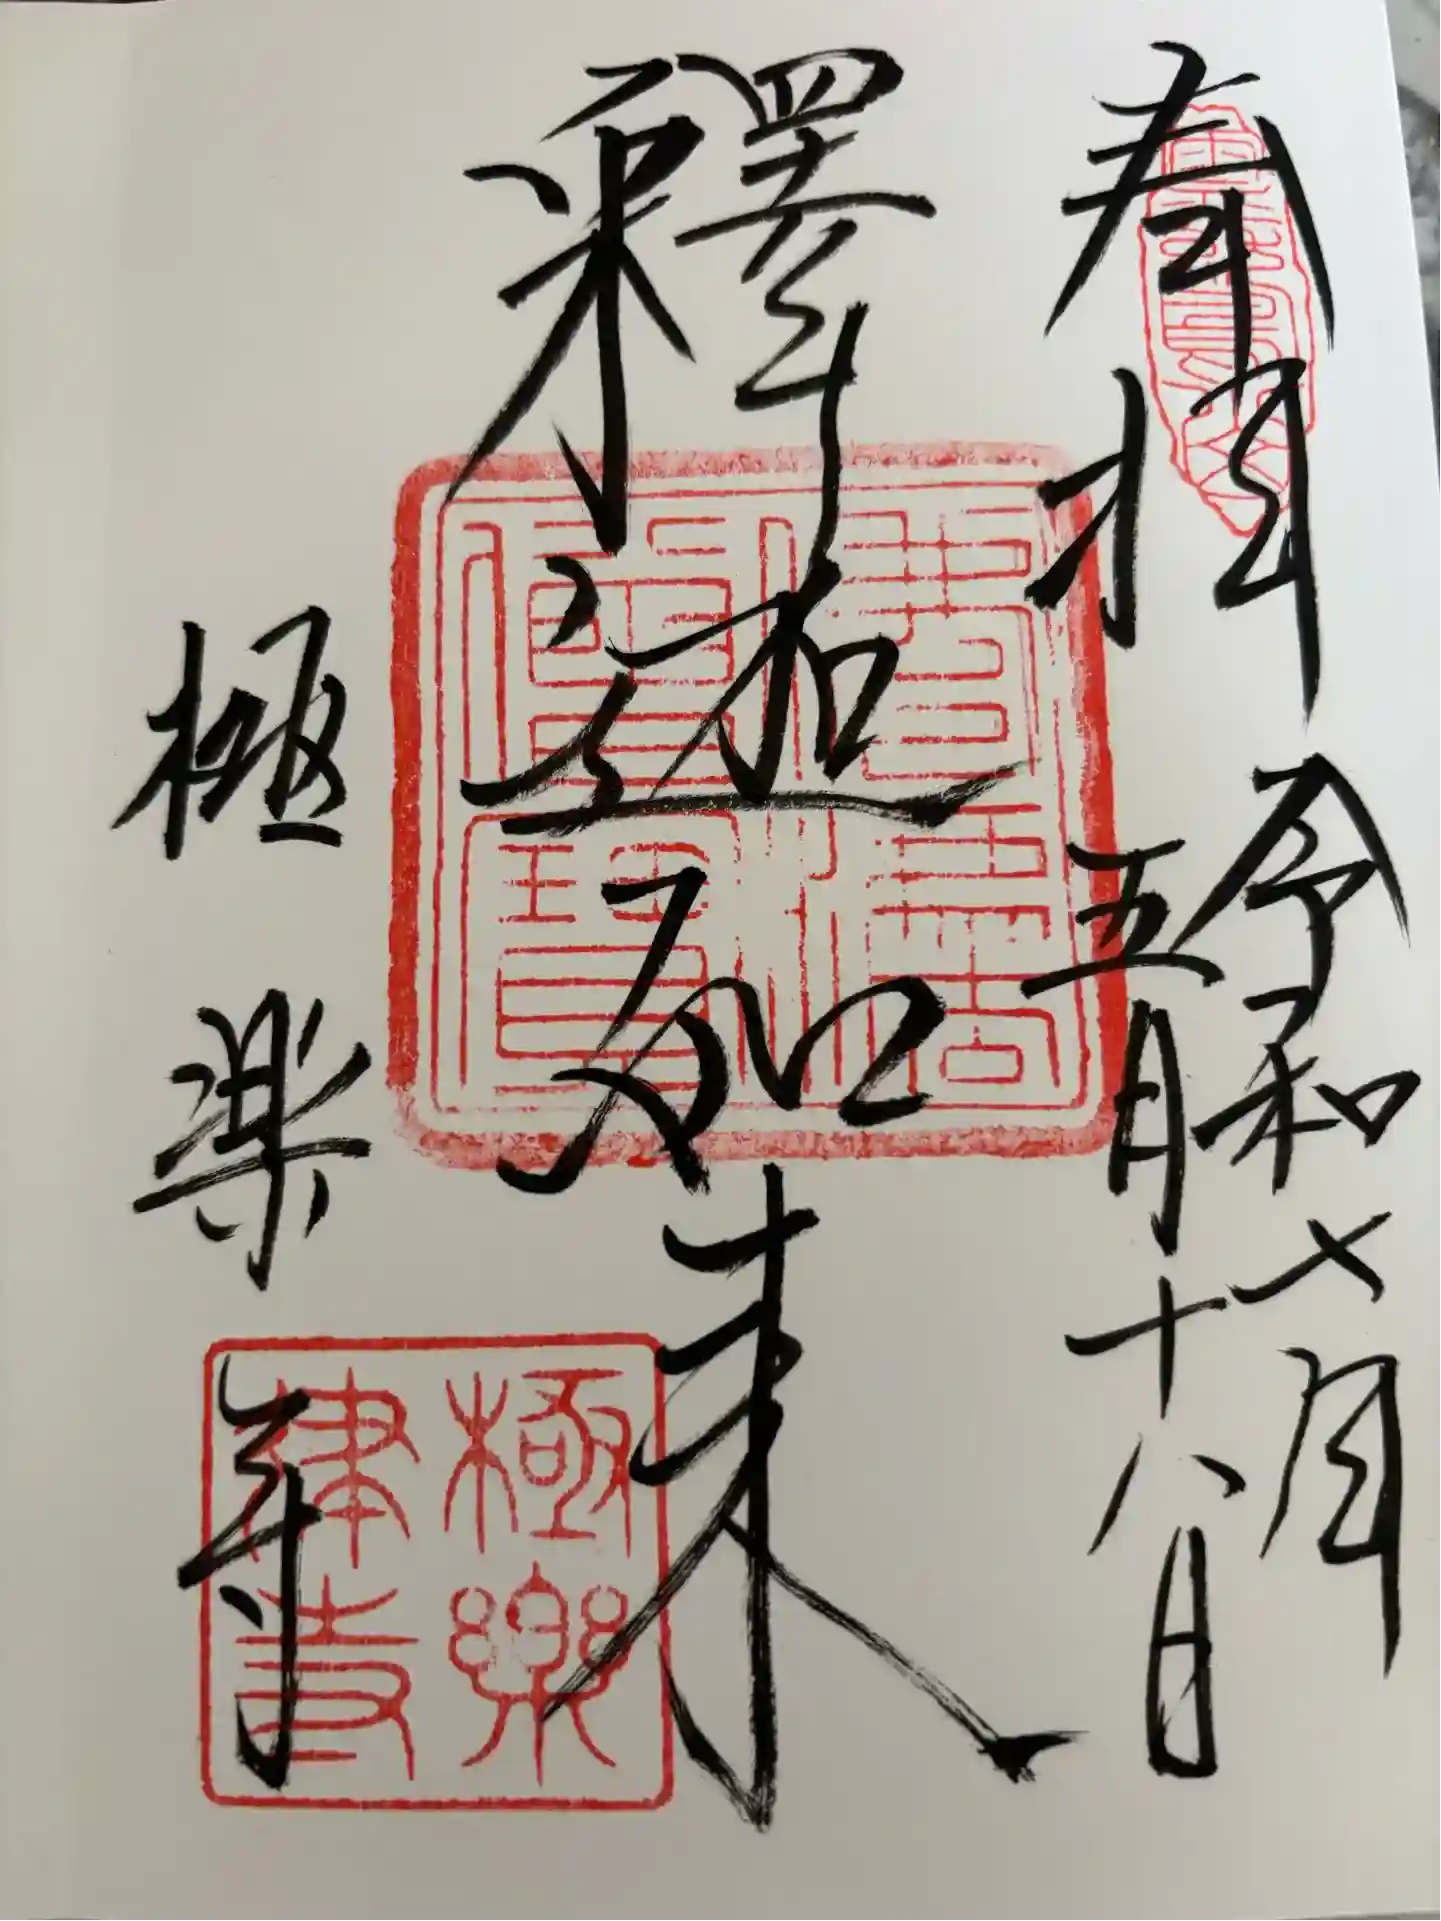 奉拝
令和七年
五月十八日
釋迦如来
極楽寺
極樂
律寺